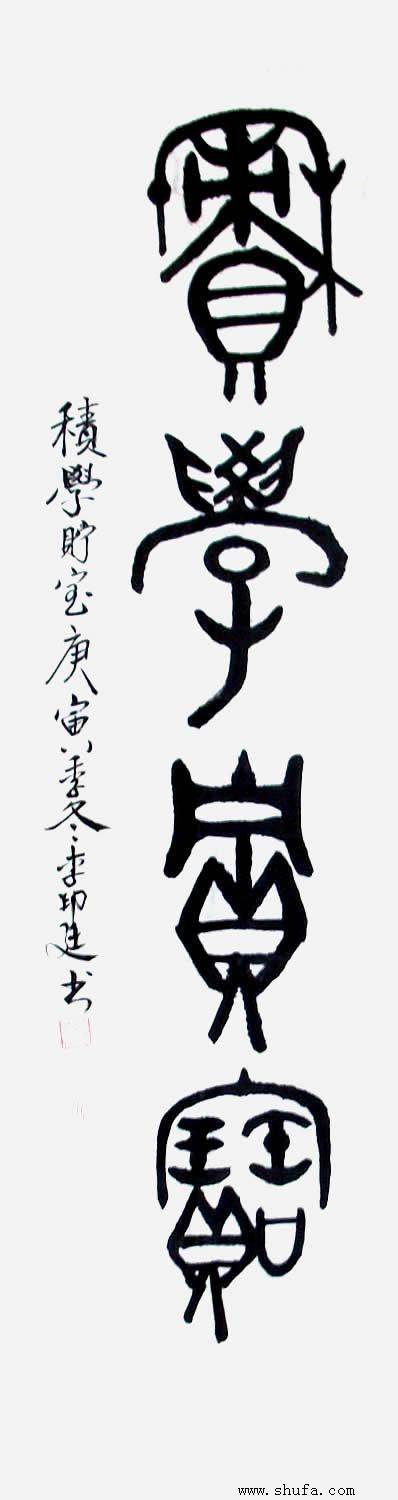 積學貯寶
積學貯宝庚寅季冬李印廷书
www.shufa.com